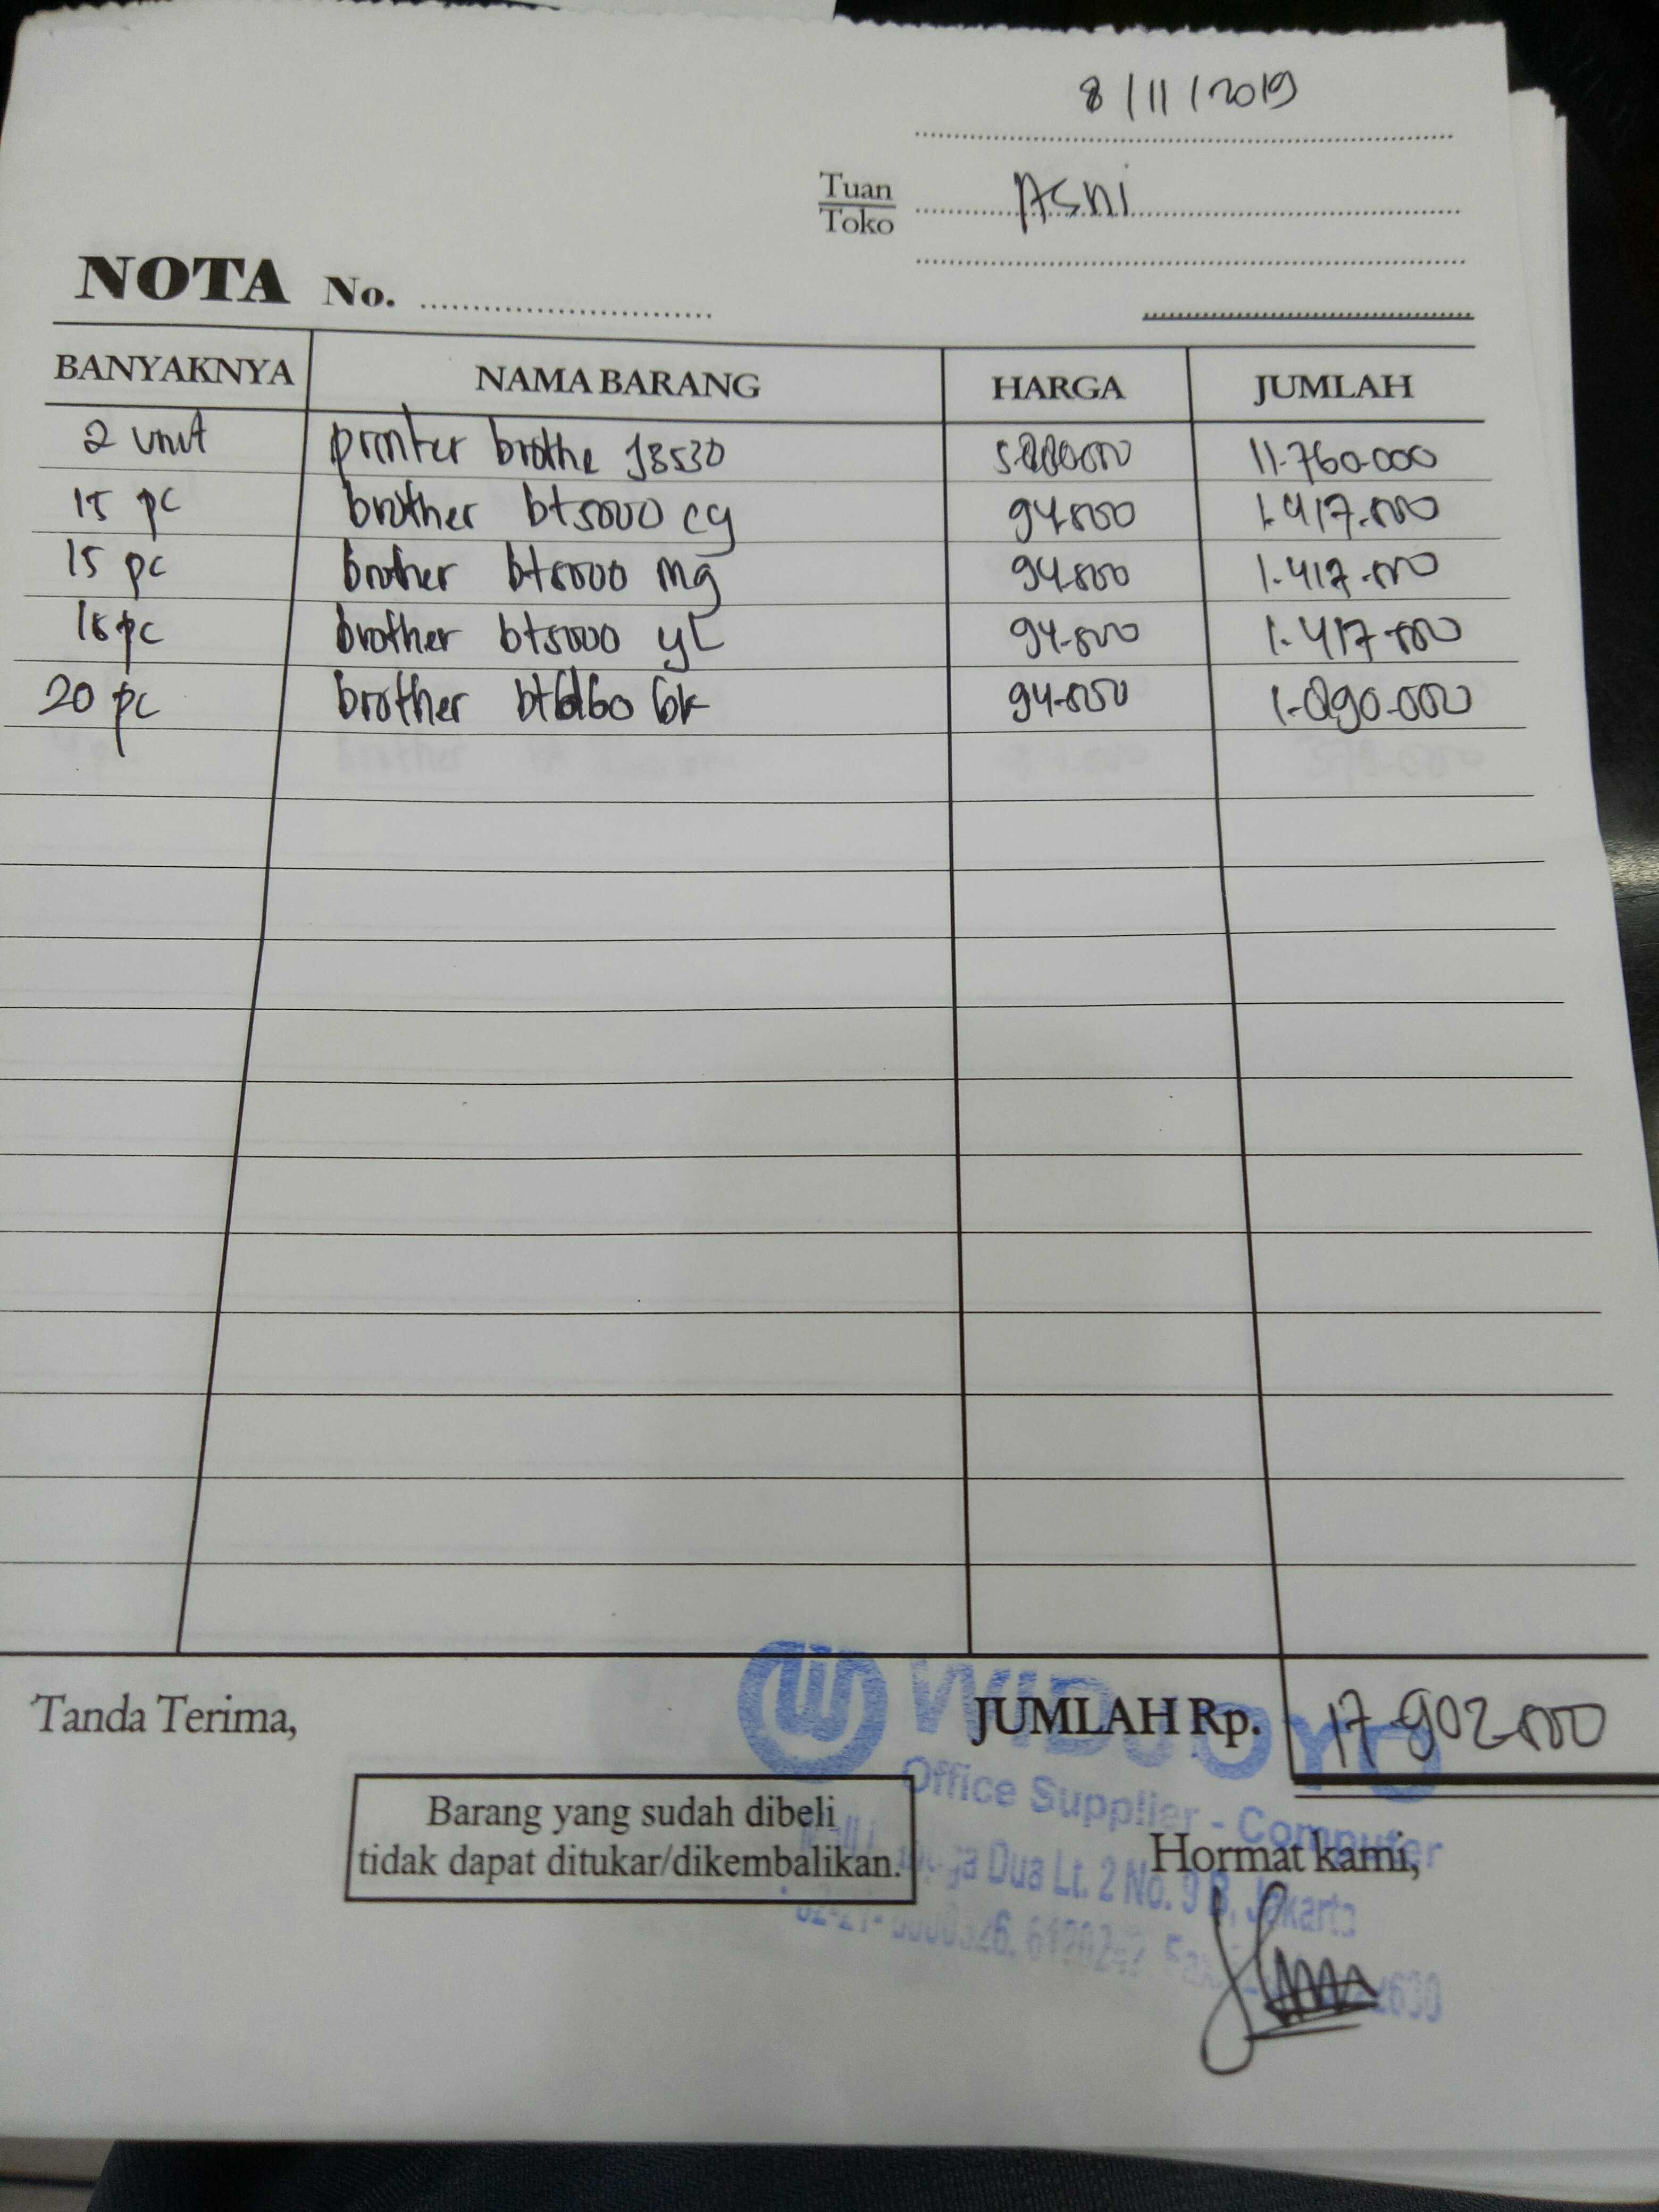 8/11/2019
Tuan
Toko
Asni
NOTA No.
BANYAKNYA NAMA BARANG HARGA JUMLAH
2 unit printer brothe J3530 11.760.000
15 pc brother bt5000 cy 94.500 1.417.500
15 pc brother bt5000 mg 94.500 1.417.500
15 pc brother bt5000 yL 94.500 1.417.500
20 pc brother btd60 bk 94.500 1.890.000
Tanda Terima, JUMLAH Rp. 17.902.500
Office Supplier - Computer
Barang yang sudah dibeli
tidak dapat ditukar/dikembalikan.
Hormat kami,
Dua Lt. 2 No. 9 B, Jakarta